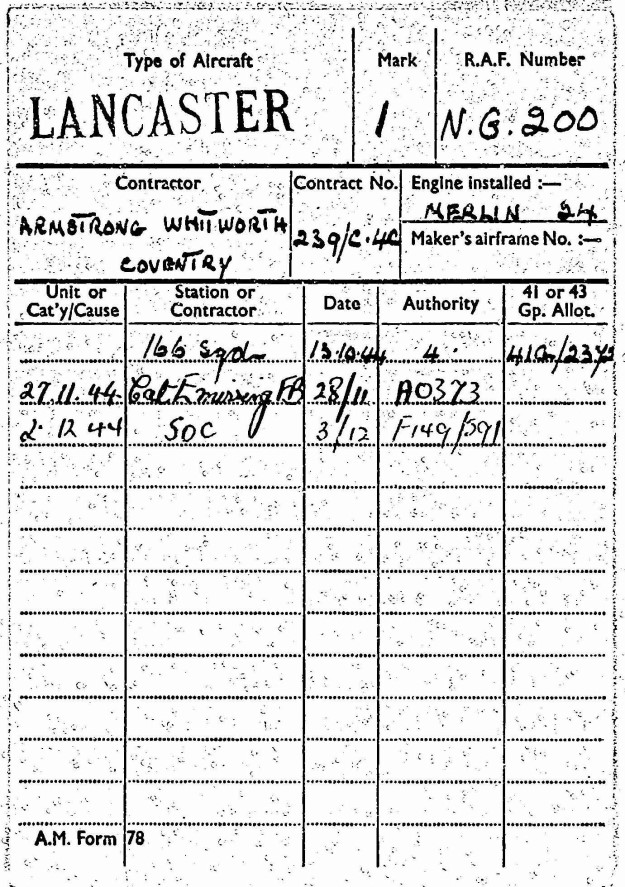 Type of Aircraft Mark R.A.F. Number
LANCASTER 1 N.G.200
Contractor Contract No. Engine installed :—
ARMSTRONG WHITWORTH MERLIN 24
COVENTRY 239/C.4C Maker's airframe No. :—
Unit or Cat'y/Cause Station or Contractor Date Authority 41 or 43 Gp. Allot.
166 Sqdn 13.10.44 4. 41G/2372
27.11.44 Cat E missing FB 28/11 A0373
2.12 44 SOC 3/12 F149/591
A.M. Form 78